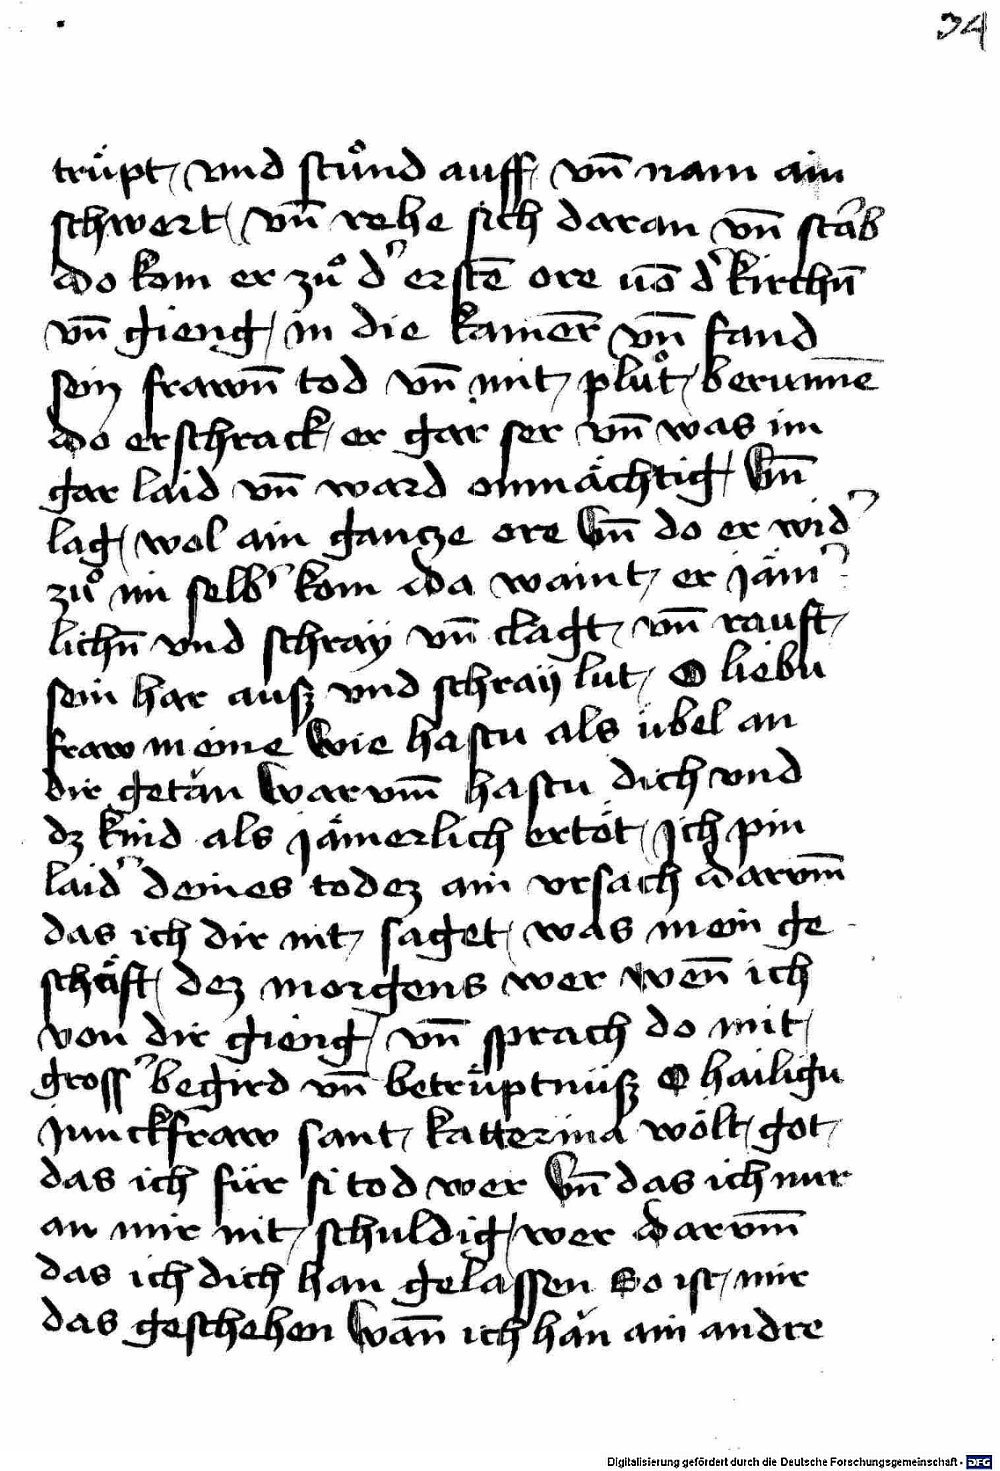 34
trüpt vnd stůnd auff vn̄ nam ain
schwert vn̄ rehe sich daran vn̄ starb
do kom er zů d' erstē ore uō d' kirchn̄
vn̄ gieng in die kamer vn̄ fand
sein frawn̄ tod vn̄ mit plůt berunnē
do erschrack er gar ser vn̄ was im
gar laid vn̄ ward onmächtig Vn̄
lag wol ain gancze ore Vn̄ do er wid'
zů im selb' kom da waint er jäm'
lichn̄ vnd schray vn̄ clagt vn̄ rauft
sein har ausz vnd schray lut O liebu
fraw meine Wie hastu als übel an
dir getän Warvm̄ hastu dich vnd
dz kind als jämerlich ertöt Ich pin
laid' deines todez ain vrsach darvm̄
das ich dir nit saget was mein ge
schäft dez morgens wer wen̄ ich
von dir gieng vn̄ sprach do mit
gross' begird vn̄ betrüptnüsz O hailigu
junckfraw sant katterina wölt got
das ich für si tod wer Vn̄ das ich nur
an mir nit schuldig wer darvm̄
das ich dich han gelassen So ist mir
das geschehen Wan̄ ich hän ain andre
Digitalisierung gefördert durch die Deutsche Forschungsgemeinschaft - DFG